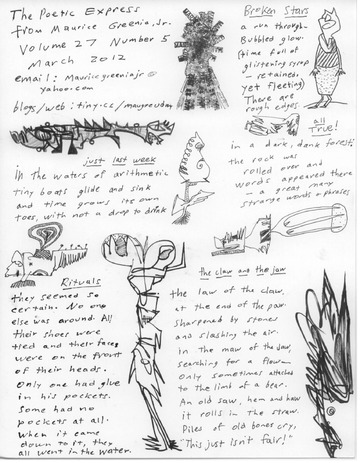 The Poetic Express
from Maurice Greenia, Jr.
Volume 27 Number 5
March 2012
email: mauricegreeniajr@
yahoo.com
blogs/web: tiny.cc/maugreuday
Broken Stars
a run through–
Bubbled glow.
time full of
glistening syrup
– retained.
yet fleeting
There are
rough edges.
just last week
In the waters of arithmetic
tiny boats glide and sink
and time grows its own
toes, with not a drop to drink
all
True!
in a dark, dank forest:
the rock was
rolled over and
words appeared there
– a great many
strange words & phrases
Rituals
they seemed so
certain. No one
else was around. All
their shoes were
tied and their faces
were on the front
of their heads.
Only one had glue
in his pockets.
Some had no
pockets at all.
when it came
down to it, they
all went in the water.
the claw and the jaw
the law of the claw.
at the end of the paw.
sharpened by stones
and slashing the air.
in the maw of the jaw,
searching for a flaw–
only sometimes attached
to the limb of a bear.
An old saw, hem and haw
it rolls in the straw.
Piles of old bones cry,
"This just isn't fair!"